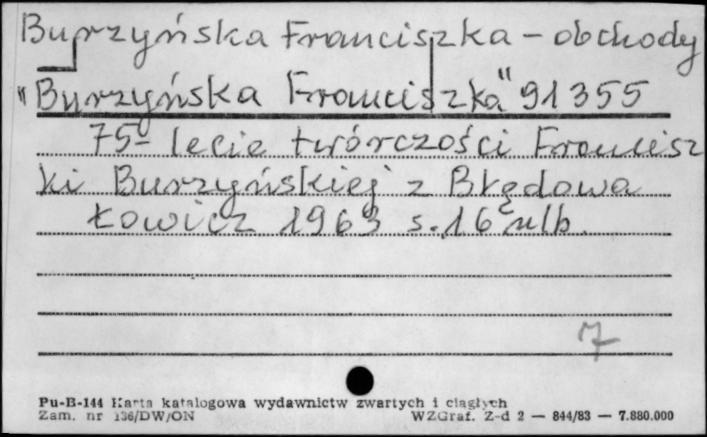 Burzyńska Franciszka - obchody
"Burzyńska Franciszka" 91355
75-lecie twórczości Francisz
ki Burzyńskiej z Błędowa
Łowicz 1963 s. 16 nlb.
7
Pu-B-144 Karta katalogowa wydawnictw zwartych i ciągłych
Zam. nr 136/DW/ON WZGraf. Z-d 2 — 844/83 — 7.880.000